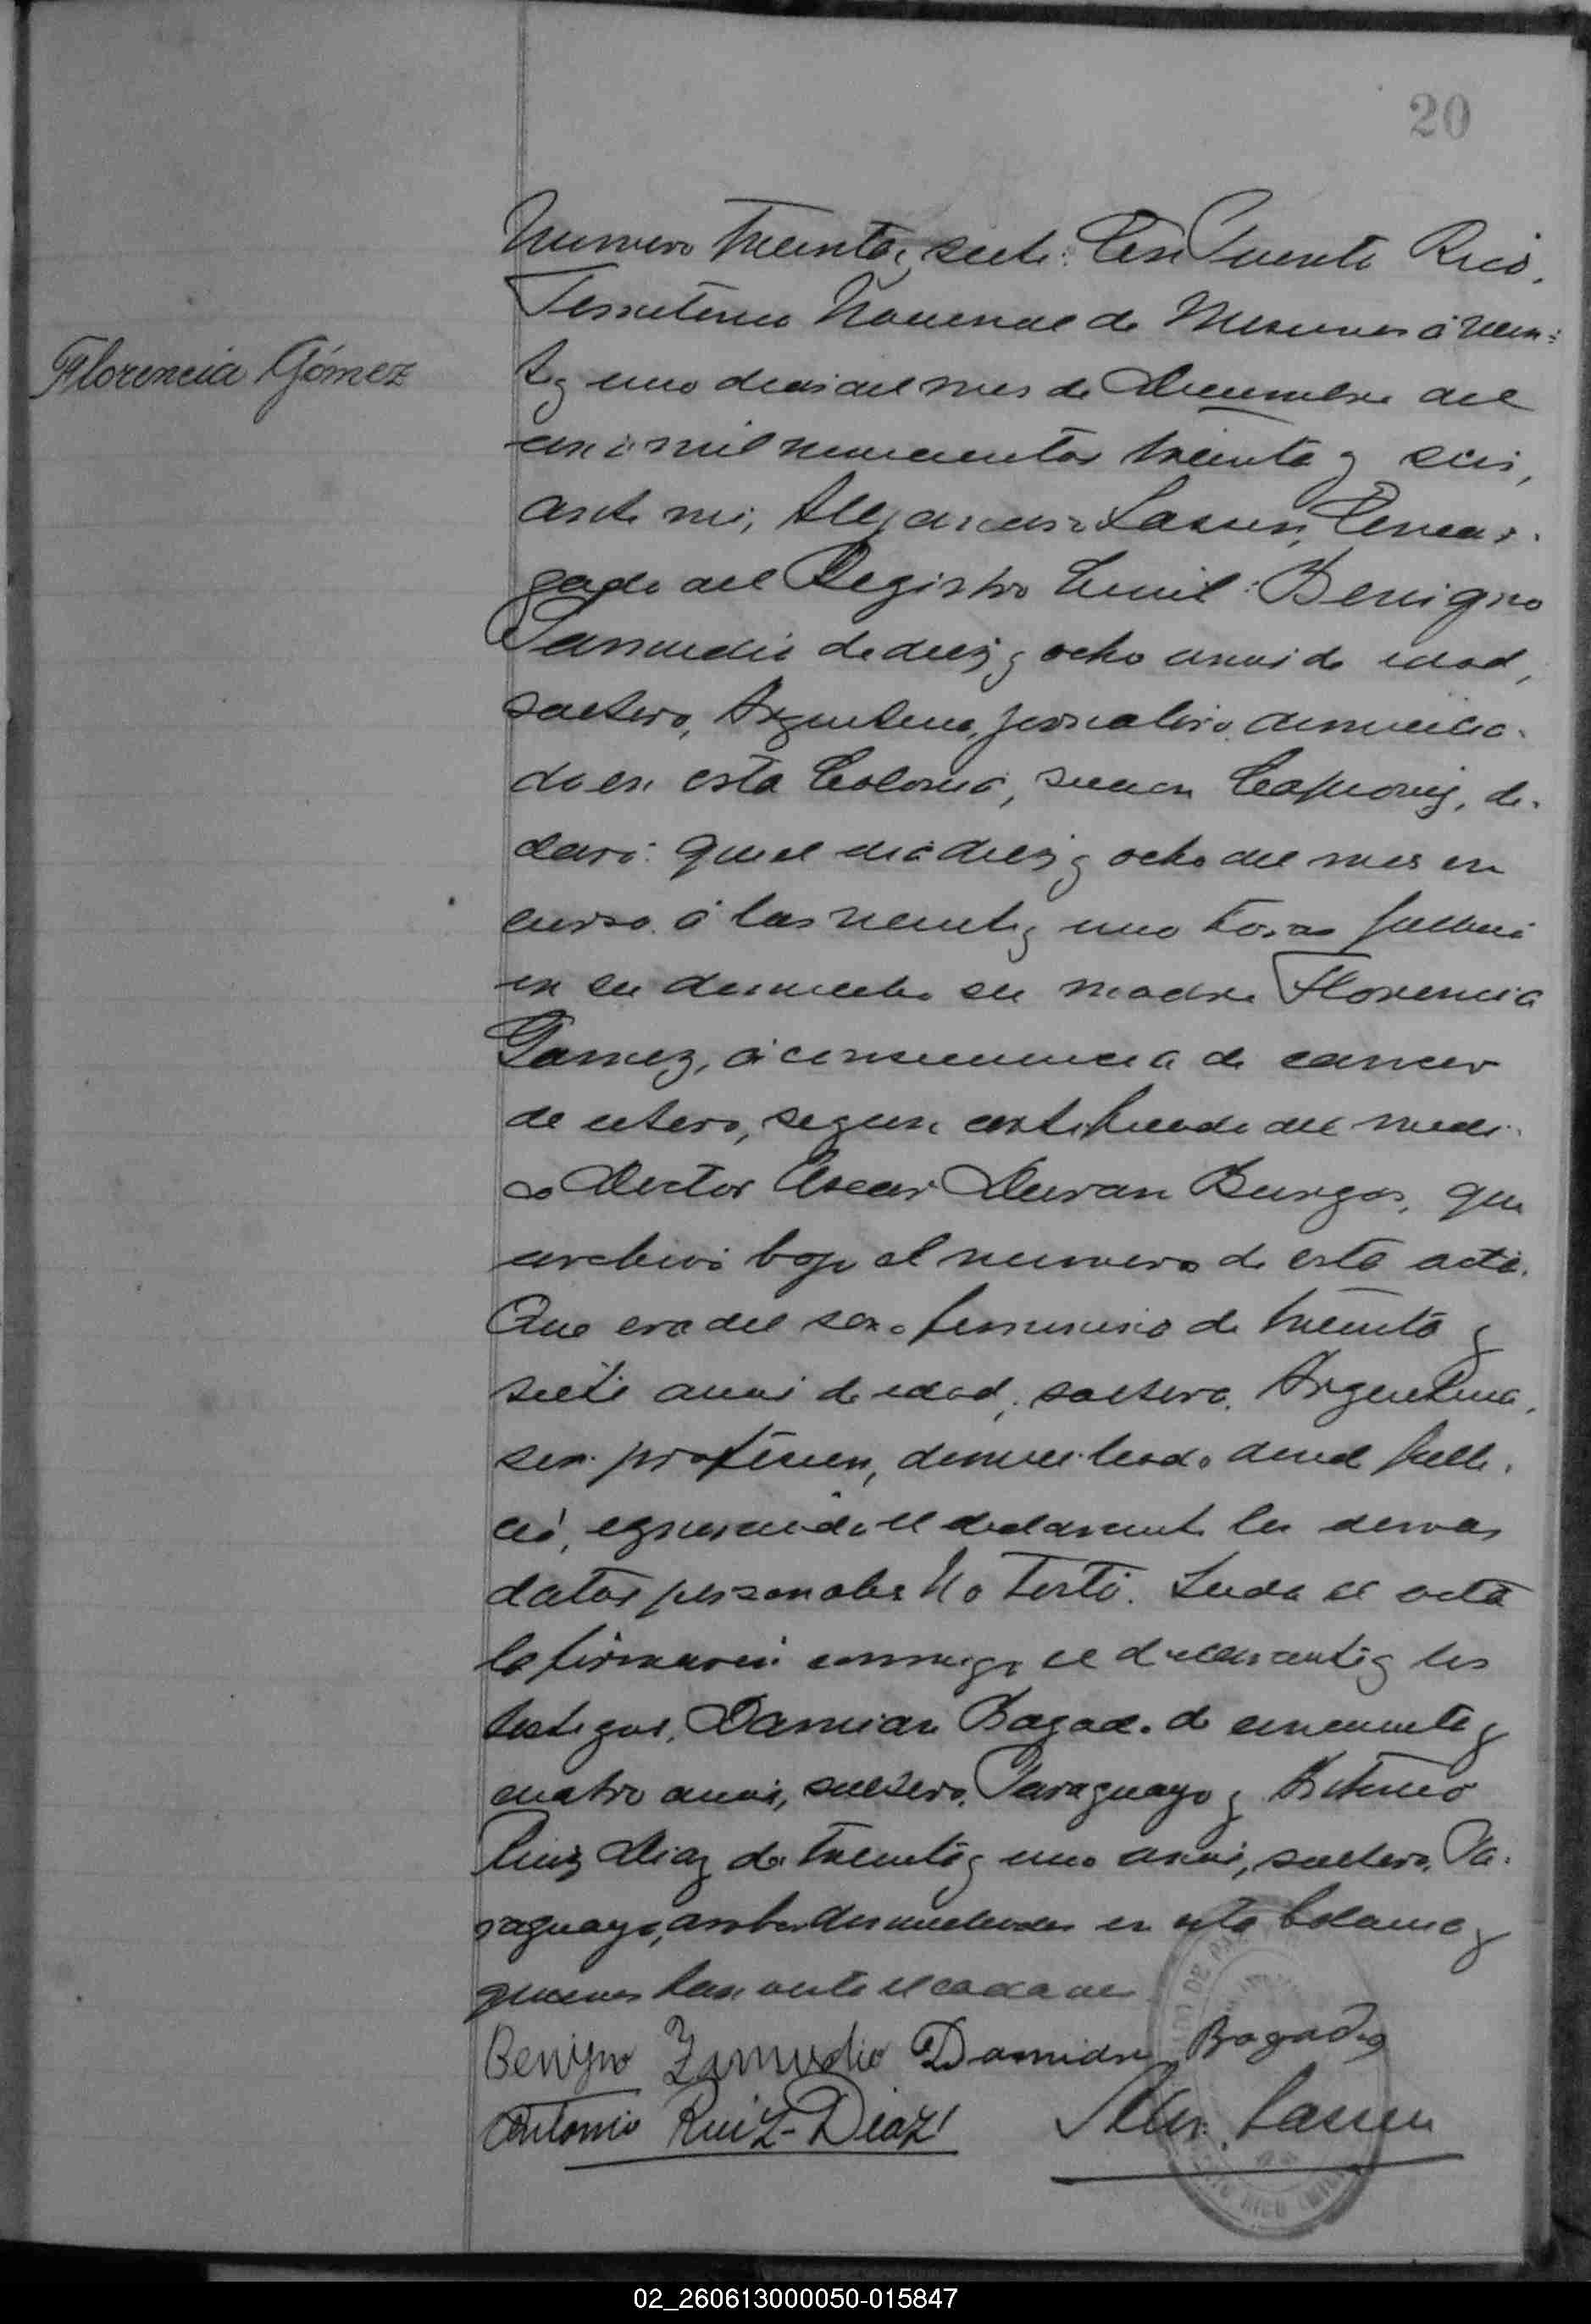 20
Florencia Gómez
Numero treinta, siete: En Puerto Rico,
Territorio Nacional de Misiones á vein-
te y uno dias del mes de Diciembre del
año mil novecientos treinta y seis,
ante mi, Alejandro Lassen, Encar-
gado del Registro Civil: Benigno
Samudio de diez y ocho años de edad,
soltero, Argentino, jornalero, domicilia-
do en esta Colonia, de-
claró: Que el dia diez y ocho del mes en
curso á las veinte y uno horas falleció
en su domicilio su madre Florencia
Gamez, á consecuencia de cancer
de utero, segun certificado del medi-
co Doctor Oscar Duran Burgos, que
archivo bajo el numero de esta acta.
Que era del sexo femenino de treinta y
siete años de edad, soltera, Argentina,
sin profesion, domiciliada donde falle-
ció, ignorando el declarante los demas
datos personales No Testó. Leida el acta
la firmaron conmigo el declarante y los
testigos, Damian Bagado. de cincuenta y
cuatro años, soltero, Paraguayo y Antonio
Ruiz Diaz de treinta y uno años, soltero, Pa-
raguayo, ambos domiciliados en esta Colonia y
quienes han visto el cadaver
Benigno Zamudio Damian Bogado
Antonio Ruiz-Diaz Alej. Lassen
02_260613000050-015847